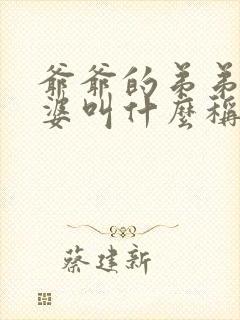 爺爺的弟弟
婆叫什麼稱
蔡建新